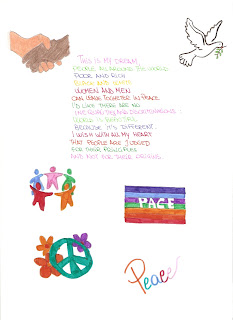 THIS IS MY DREAM
PEOPLE ALL AROUND THE WORLD
POOR AND RICH
BLACK AND WHITE
WOMEN AND MEN
CAN LEAVE TOGETHER IN PEACE
I'D LIKE THERE ARE NO
AND DISCRIMINATIONS
WORLD IS BEAUTIFUL
BECAUSE IT'S DIFFERENT.
I WISH WITH ALL MY HEART
THAT PEOPLE ARE JUDGED
FOR THEIR PRINCIPLES
AND NOT FOR THEIR
PACE
Peace